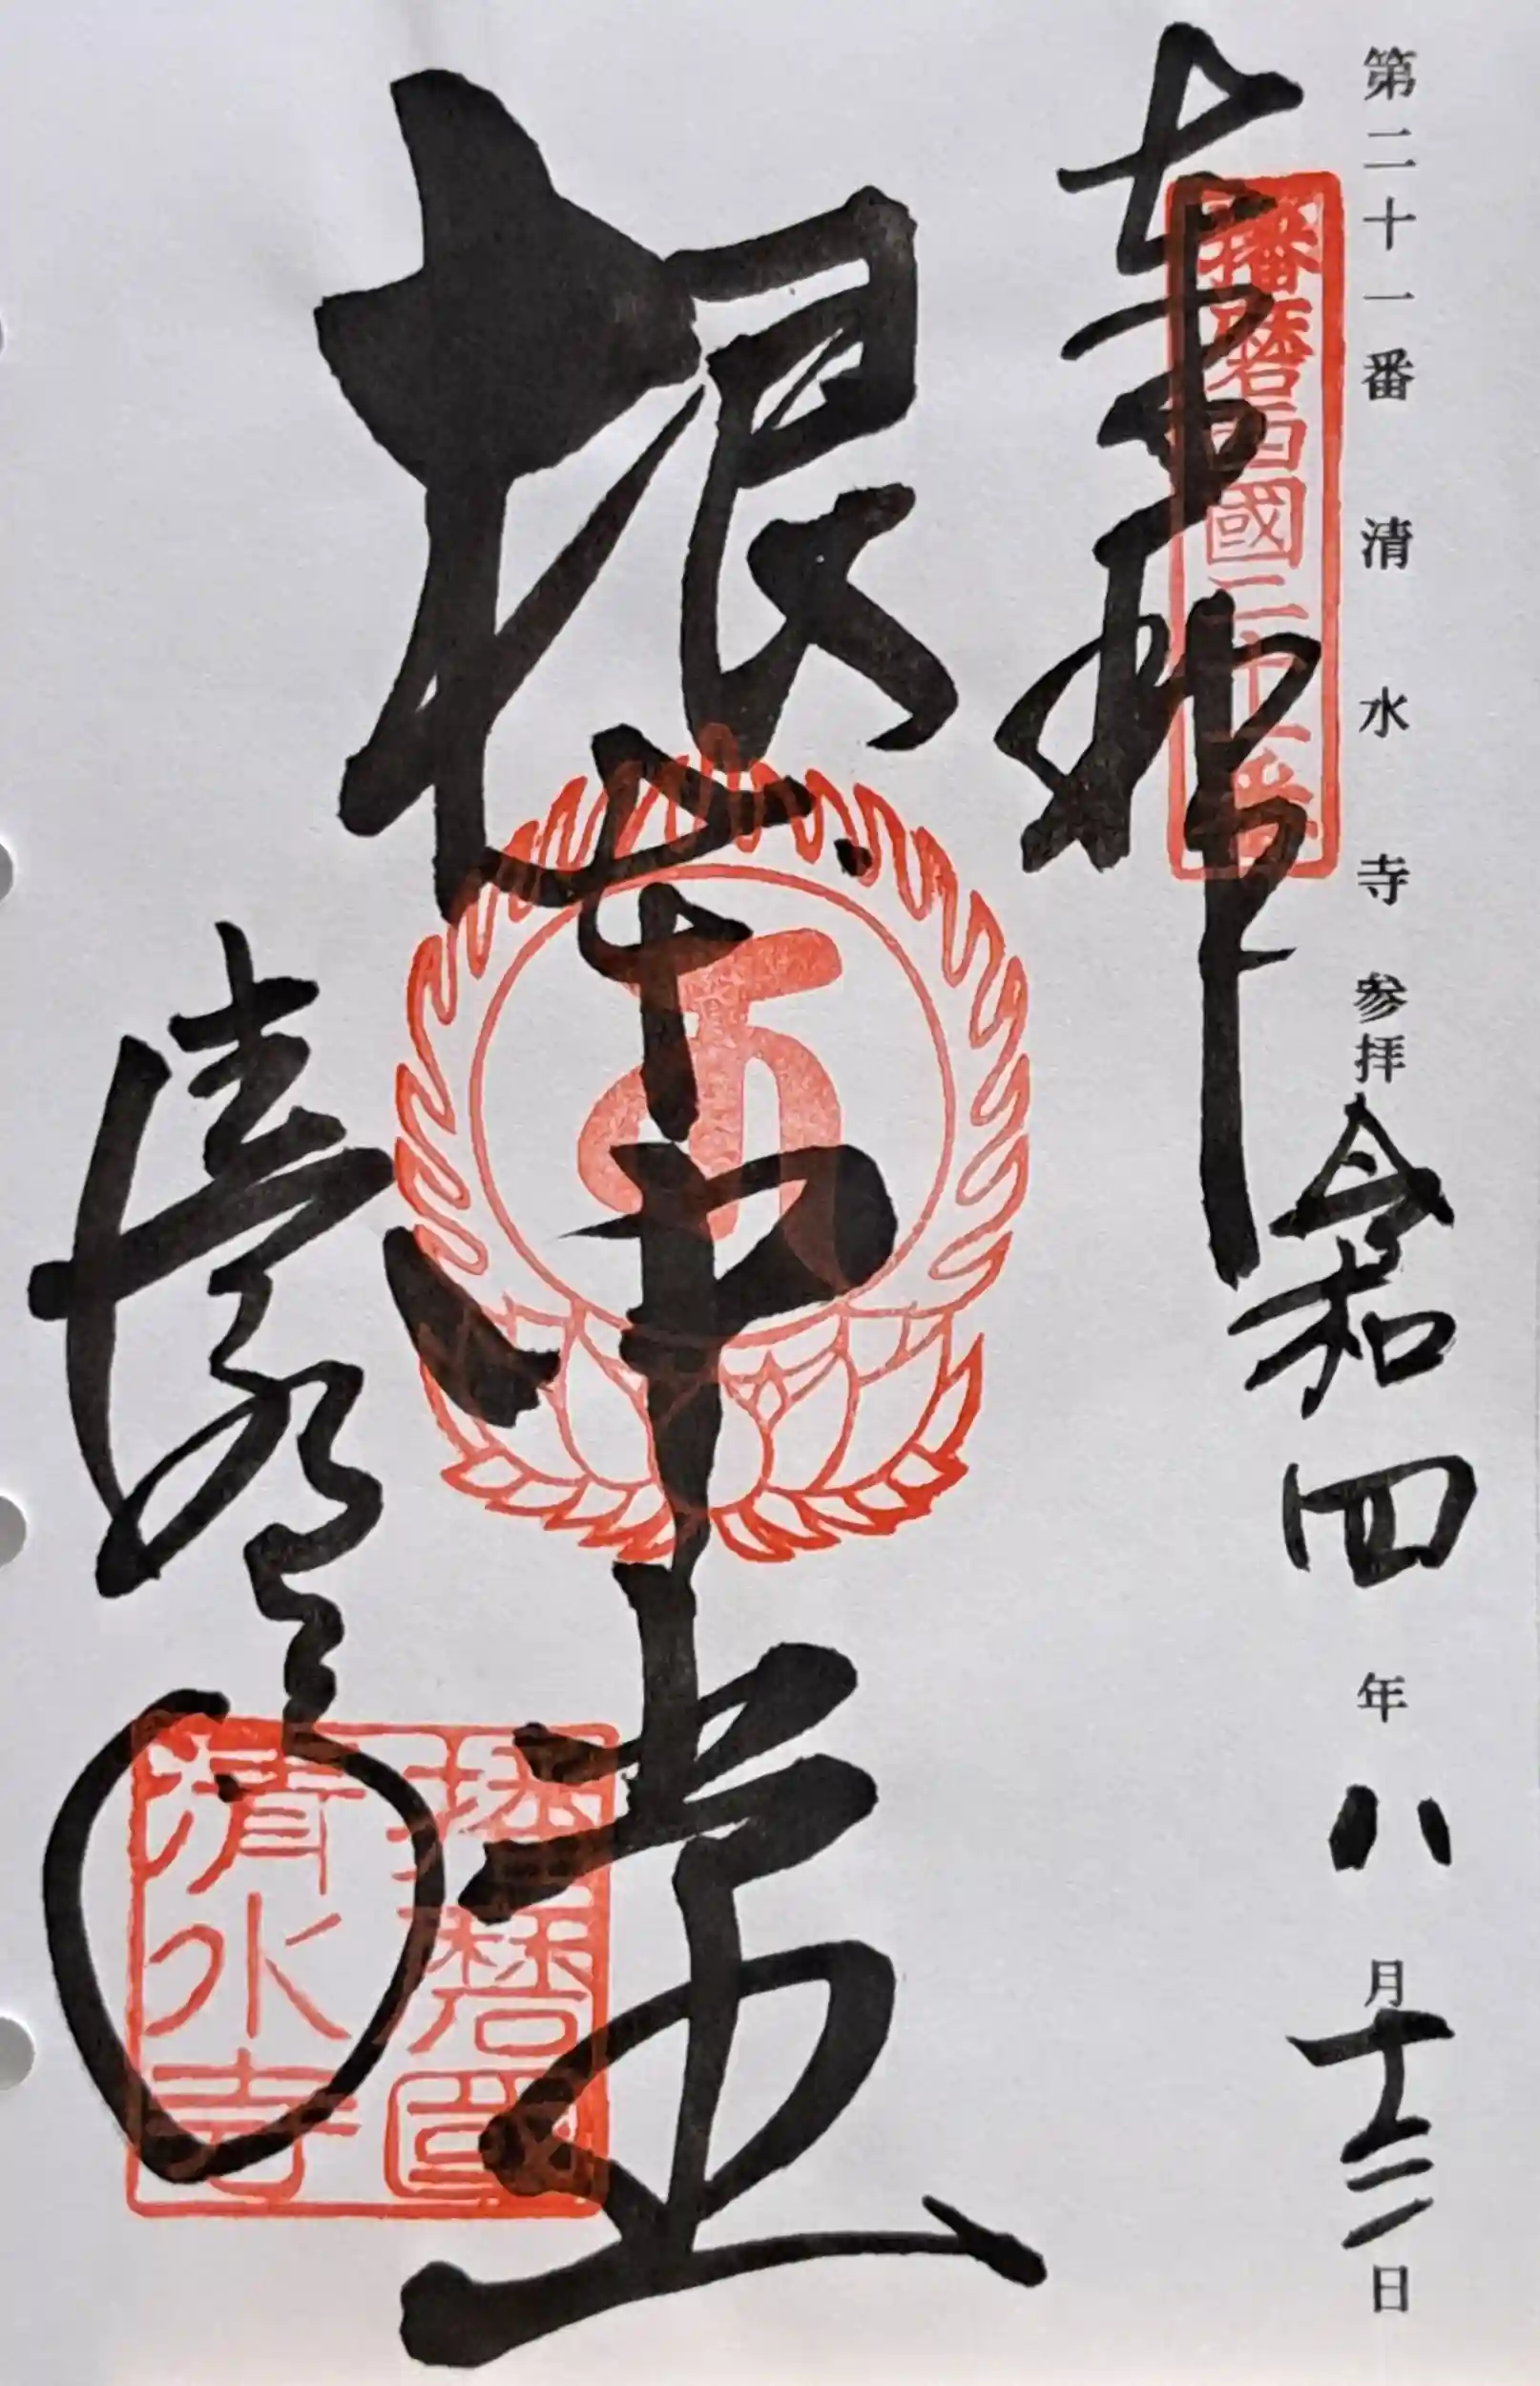 第二十一番 清水寺 参拝 令和四年八月十三日
奉拝
播磨西國二十一番
根本中堂
清水寺
播磨国
清水寺